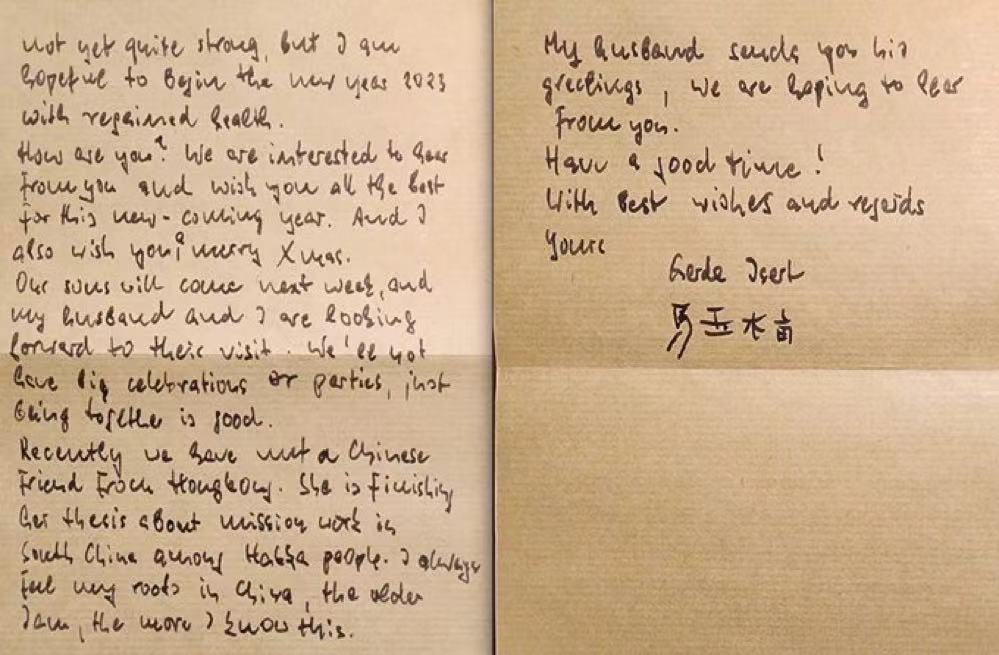 not yet quite strong, but I am
hopeful to begin the new year 2023
with regained health.
How are you? We are interested to hear
from you and wish you all the best
for this new-coming year. And I
also wish you a merry Xmas.
Our sons will come next week, and
my husband and I are looking
forward to their visit. We'll not
have big celebrations or parties, just
being together is good.
Recently we have met a Chinese
friend from Hongkong. She is finishing
her thesis about mission work in
South China among Hakka people. I always
feel my roots in China, the older
I am, the more I know this.
My husband sends you his
greetings, we are hoping to hear
from you.
Have a good time!
With best wishes and regards
Yours
Gerda Isert
马玉水